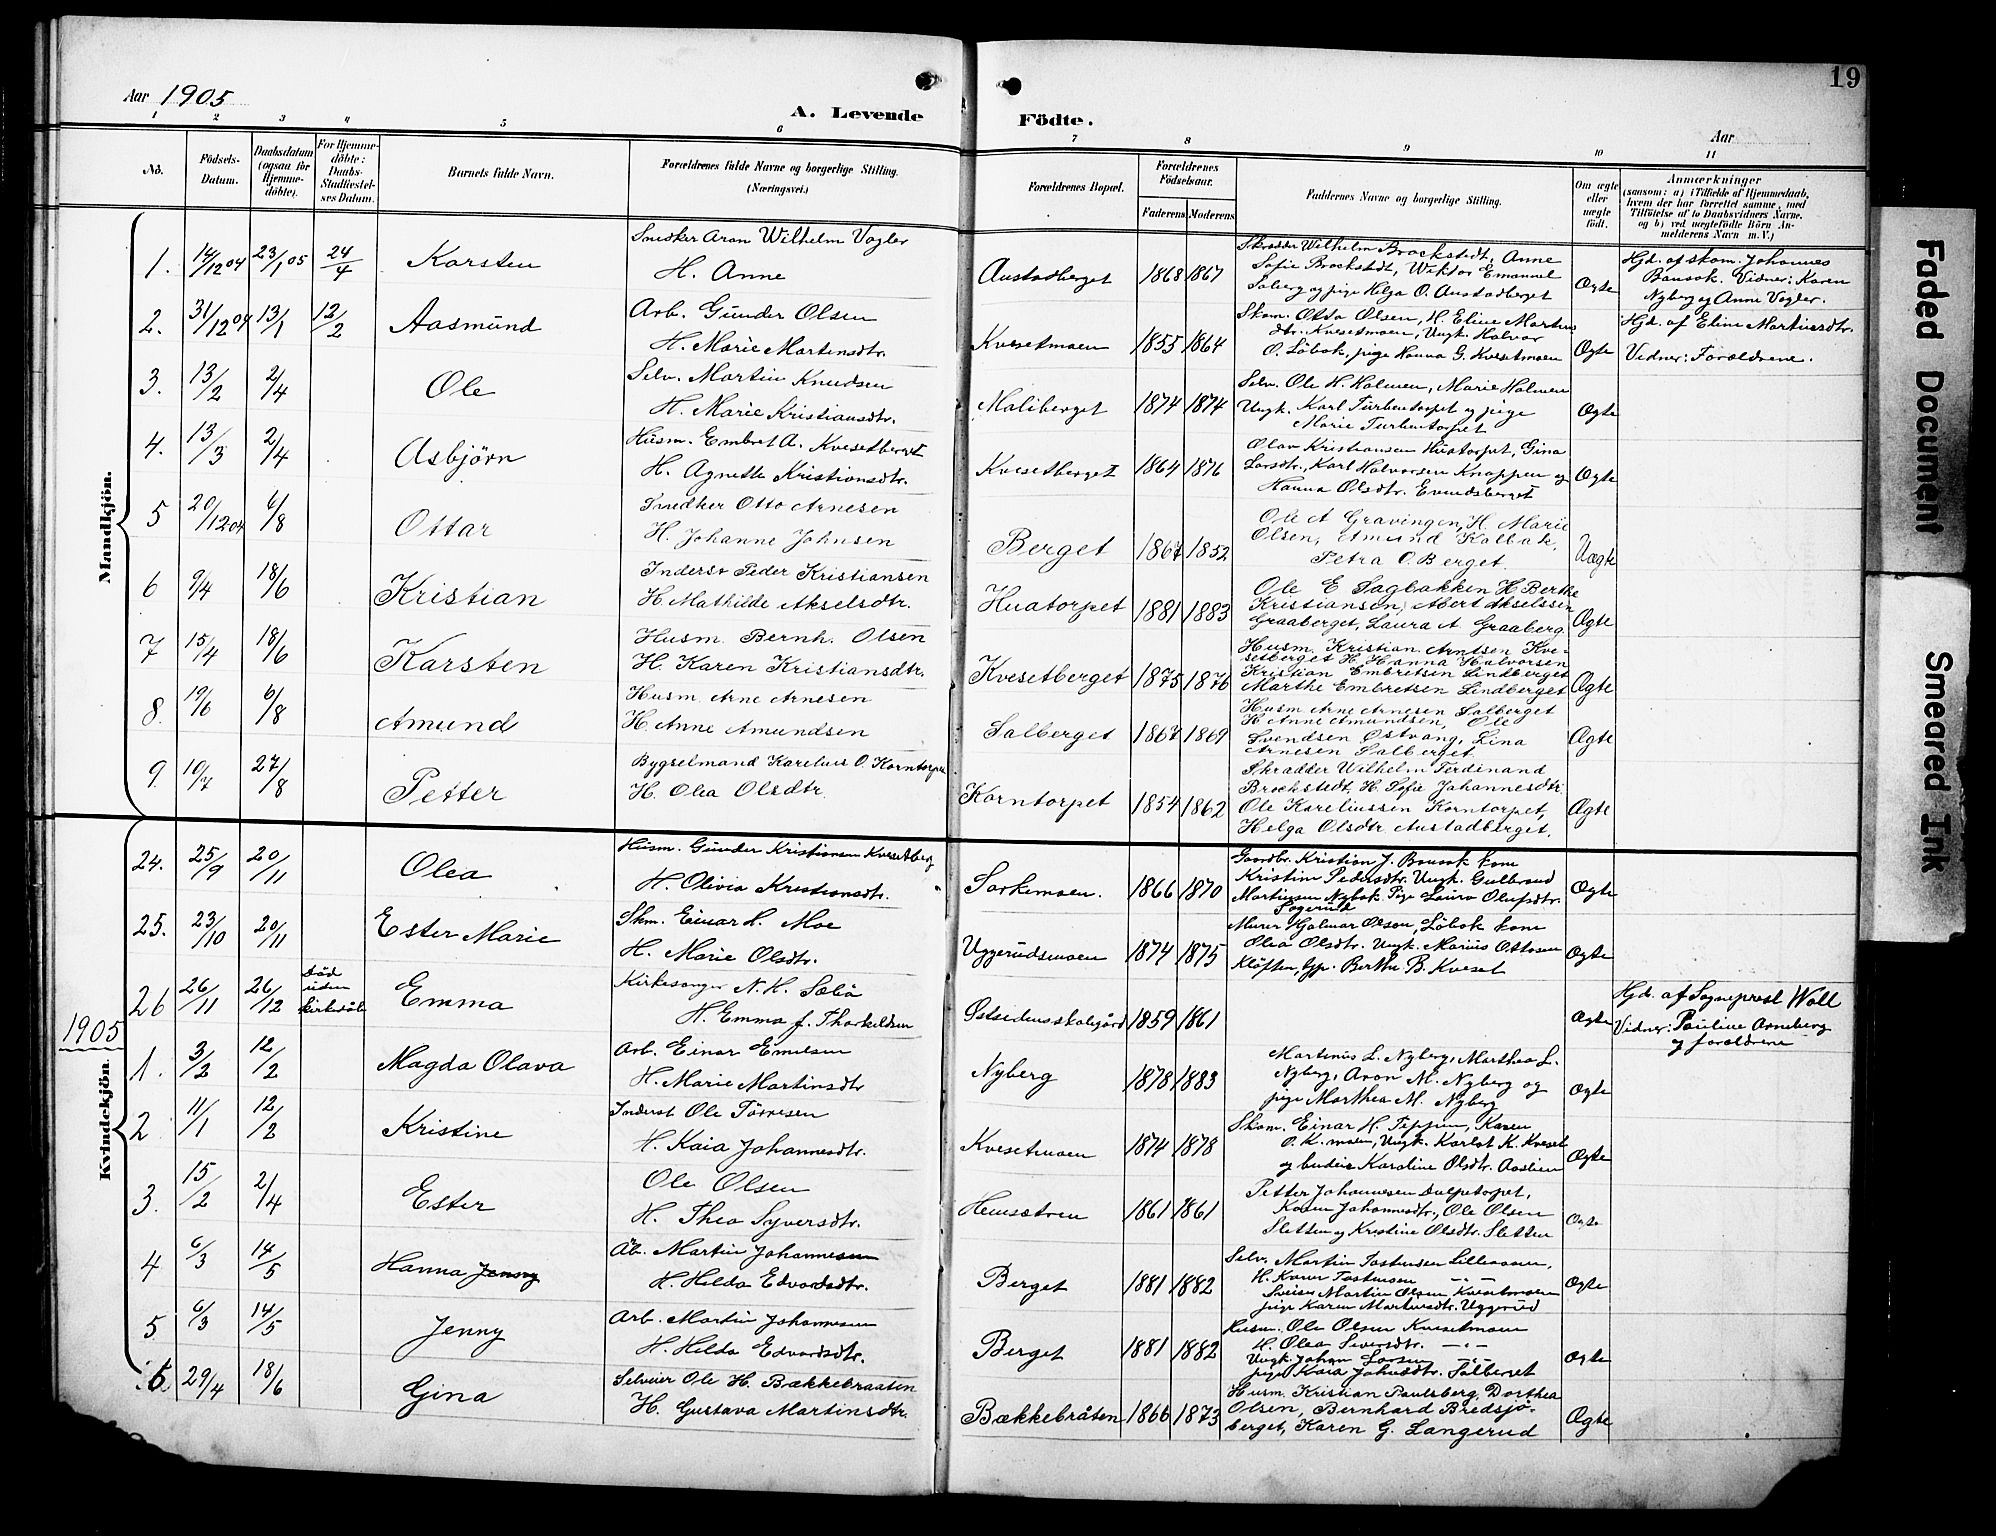 Aar 1905
A. Levende Födte.
Aar
19
1 2 3 4 5 6 7 8 9 10 11
No.
Födsels-Datum.
Daabsdatum (ogsaa for Hjemme-döbte).
For Hjemme-döbte: Daabs-Stadfæstel-ses Datum.
Barnets fulde Navn.
Forældrenes fulde Navne og borgerlige Stilling. (Næringsvei.)
Forældrenes Bopæl.
Forældrenes Födselsaar.
Faderens Moderens
Faddernes Navne og borgerlige Stilling.
Om ægte eller uægte födt.
Anmærkninger
(saasom: a) i Tilfælde af Hjemmedaab,
hvem der har forrettet samme, med
Tilföielse af to Daabsvidners Navne.
og b) ved uægtefödte Börn An-
melderens Navn m. V.)
Mandkjön.
1. 14/12 04 23/1 05 24/4 Karsten
Snedker Aron Wilhelm Vogler
H. Anne
Austadberget 1868 1867
Skrædder Wilhelm Brockstedt, Anne
Sofie Brockstedt, Viktor Emanuel
Soberg og pige Helga O. Austadberget
Ægte
Hjd. af skom. Johannes
Bausok. Vidner: Karen
Nyberg og Anne Vogler.
2. 31/12 04 13/1 12/2 Aasmund
Arb. Gunder Olsen
H. Marie Martinsdtr.
Kvesetmoen 1855 1864
Skom. Otto Olsen, H. Eline Martins
dtr. Kvesetmoen, Ungk. Halvor
O. Löbok, pige Hanna G. Kvesetmoen
Ægte
Hjd. af Eline Martinsdtr.
Vidner: Forældrene.
3. 13/2 2/4 Ole
Selv. Martin Knudsen
H. Marie Kristiansdtr.
Maliberget 1874 1874
Selv. Ole H. Holmen, Marie Holmen
Ungk. Karl Turbentorpet og pige
Marie Turbentorpet
Ægte
4. 13/3 2/4 Asbjörn
Husm. Embret A. Kvesetberget
H. Agnethe Kristiansdtr.
Kvesetberget 1864 1876
Olav Kristiansen Huatorpet, Gina
Larsdtr., Karl Halvorsen Knappen og
Hanna Olsdtr. Evensberget
Ægte
5 20/12 04 6/8 Ottar
Snedker Otto Arnesen
H. Johanne Johnsen
Berget 1867 1852
Ole A Gravingen, H. Marie
Olsen, Amund Kalbak,
Petra O. Berget.
Uægte
6 9/4 18/6 Kristian
Inderst Peder Kristiansen
H. Mathilde Akselsdtr.
Huatorpet 1881 1883
Ole E Sagbakken H Berthe
Kristiansen, Albert Akselssen
Graaberget, Laura A Graaberg.
Ægte
7 15/4 18/6 Karsten
Husm. Bernh. Olsen
H. Karen Kristiansdtr.
Kvesetberget 1875 1876
Husm. Kristian Arntsen Kve-
setberget H. Hanna Halvorsen
Kristian Embretsen Lindberget
Marthe Embretsen Lindberget
Ægte
8. 19/6 6/8 Amund
Husm Arne Arnesen
H Anne Amundsen
Salberget 1867 1869
Husm Arne Arnesen Salberget
H Anne Amundsen, Ole
Svendsen Ostvang, Lina
Arnesen Salberget.
Ægte
9. 10/7 27/8 Petter
Bygselmand Karelius O. Korntorpet
H. Olea Olsdtr.
Korntorpet 1854 1862
Skrædder Wilhelm Ferdinand
Brockstedt, H. Sofie Johannesdtr.
Ole Kareliussen Korntorpet,
Helga Olsdtr Austadberget.
Ægte
24. 25/9 20/11 Olea
Husm. Gunder Kristiansen Kvesetberg
H. Olivia Kristiansdtr.
Sorkemoen. 1866 1870
Gaardbr. Kristian J. Bausok kone
Kristine Pedersdtr. Ungk. Gulbrand
Martinsen Nybak Pige Laura Olufsdtr.
Sogerud
Ægte
25. 23/10 20/11 Ester Marie
Skm. Einar H. Moe
H. Marie Olsdtr.
Uggerudsmoen 1874 1875
Murer Hjalmar Olsen, Löbok kone
Olea Olsdtr. Ungk. Marius Ottosen
Klöften, Gp. Berthe B. Kveset
Ægte
26 26/11 26/12 död uden kirkedåb Emma
Kirkesanger N. H. Sæbö
H. Emma f. Thorkildsen
Østsidensskolegård 1859 1861
Ægte
Hjd. af Sogneprest Woll
Vidner: Pauline Arneberg
og forældrene
1905
Kvindekjön.
1. 3/2 12/2 Magda Olava
Arb. Einar Emilsen
H. Marie Martinsdtr
Nyberg 1878 1883
Martinus L. Nyberg, Marthea L.
Nyberg, Aron M. Nyberg og
pige Marthea M. Nyberg
Ægte
2 11/1 12/2 Kristine
Inderst Ole Törresen
H. Kaia Johannesdtr.
Kvesetmoen 1874 1878
Skom. Einar H. Teppen, Karen
O. K. moen, Ungk. Karlot K. Kveset
og budeie Karoline Olsdtr. Aaslien
Ægte
3. 15/2 2/4 Ester
Ole Olsen
H. Thea Syversdtr.
Hemsætren 1861 1861
Petter Johannesen Dulpetorpet,
Karen Johannesdtr., Ole Olsen
Sletten og Kristine Olsdtr. Sletten
Ægte
4 6/3 14/5 Hanna Jenny
Ab. Martin Johannesen
H. Hilda Edvardsdtr.
Berget 1881 1882
Selv. Martin Tostensen Lillemoen,
H. Karen Tostensen —"—
Sveiser Martin Olsen Kvesetmoen
pige Karen Martinsdtr. Uggerud
Ægte
5 6/3 14/5 Jenny
Arb. Martin Johannesen
H. Hilda Edvardsdtr.
Berget 1881 1882
Husm. Ole Olsen Kvesetmoen
H. Olea Siversdtr. —"—
Ungk. Johan Larsen —"—
pige Kaia Johnsdtr. Salberget
Ægte
6 29/4 18/6 Gina
Selveier Ole H. Bækkebraaten
H. Gustava Martinsdtr.
Bækkebråten 1866 1873
Husm. Kristian Paulsberg, Dorthea
Olsen, Bernhard Bredsjö-
berget, Karen G. Langerud
Ægte
Faded Document
Smeared Ink